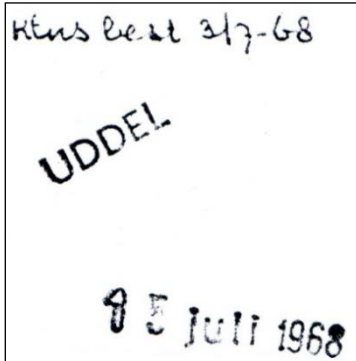 Ktns best 3/7-68
UDDEL
15 juli 1968